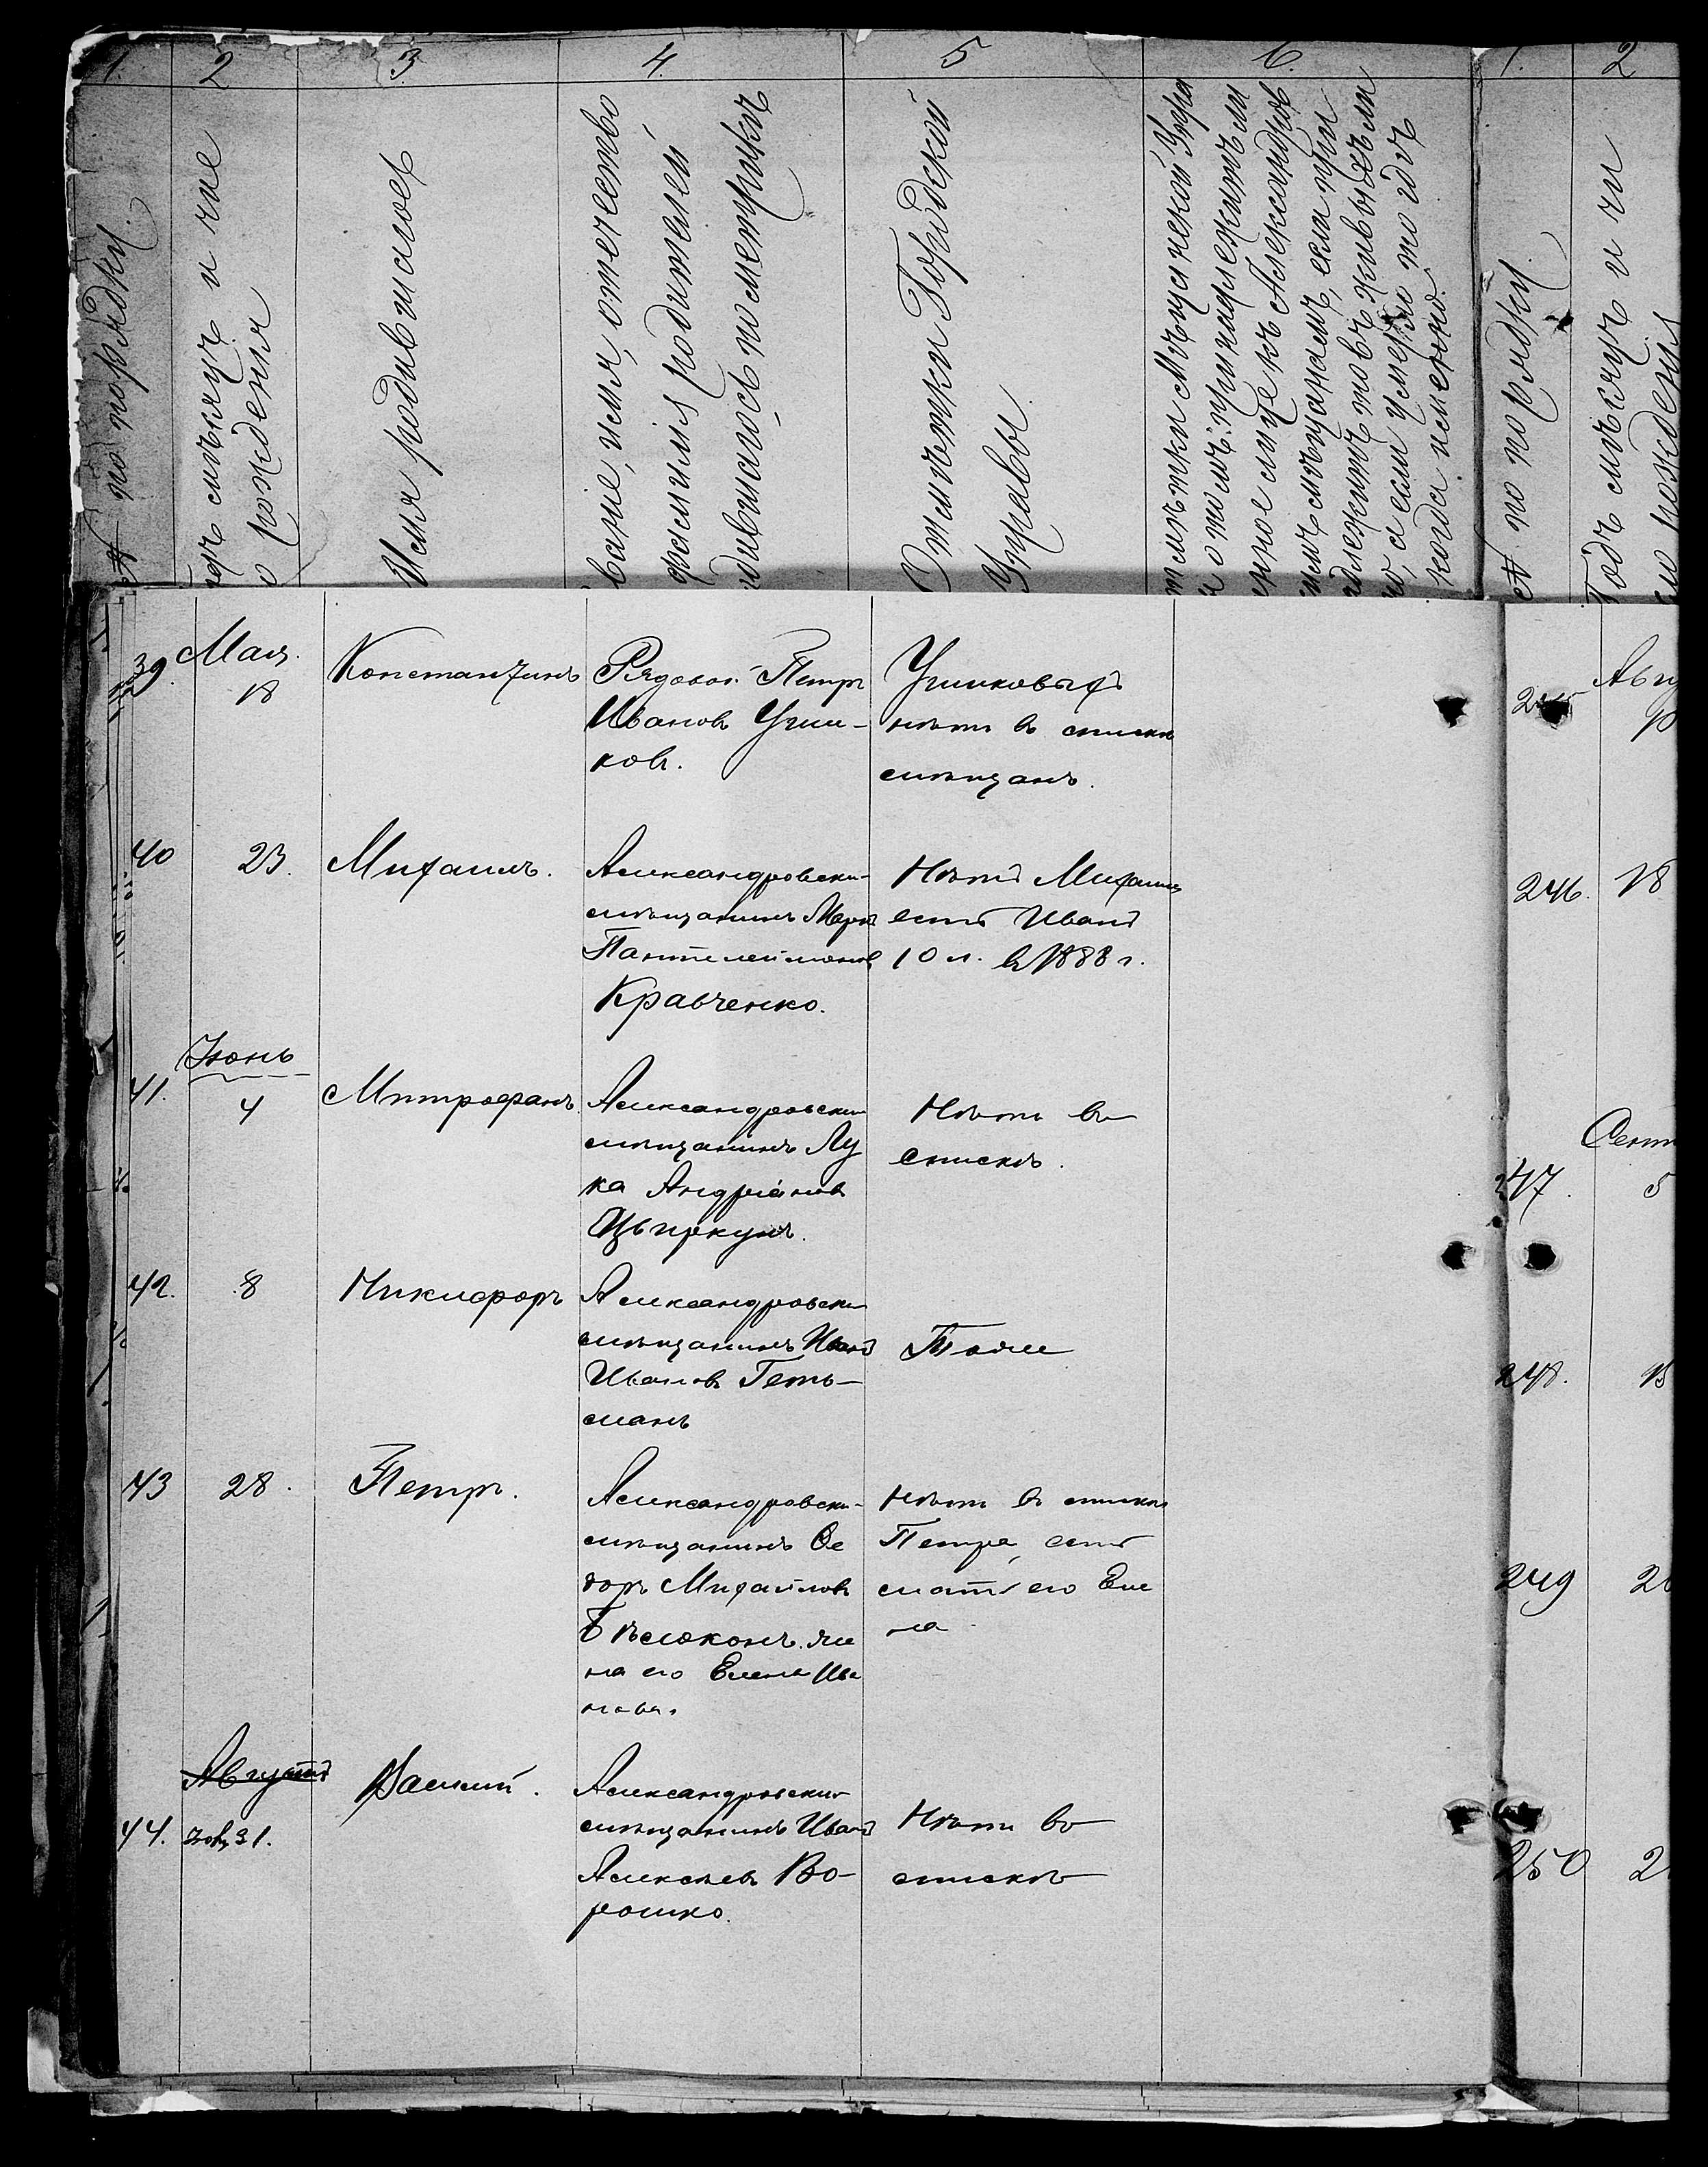 1. 2 3 4. 5 6. 1. 2
№ по порядку.
Годъ мѣсяцъ и чис
ло рожденія
Имя родившагося
Званіе, имя, отчество
фамилія родителей
родившагося по метрикѣ
Отмѣтки Городской
Управы
Отмѣтки Мѣщанской Упра
вы о томъ: принадлежитъ ли
лице къ Александров
скимъ мѣщанамъ, если при
надлежитъ то въ живыхъ ли
а если умеръ то годъ
когда именно.
№ по порядку
Годъ мѣсяцъ и чи
сло рожденія
39. Мая. 18
Константинъ
Рядовой Петръ
Иванов Ушы-
ковъ.
Ушыковыхъ
нѣтъ въ списки
мѣщанъ.
40 23. Михаилъ.
Александровскі-
мѣщанинъ Марк
Пантелеймонов
Кравченко.
Нѣтъ Михаила
есть Иванъ
10 л. въ 1888 г.
Іюнь
41. 4 Митрофанъ.
Александровскі
мѣщанинъ Лу
ка Андріановъ
Цыпкунъ.
Нѣтъ въ
спискѣ.
42. 8 Никифоръ
Александровскі
мѣщанинъ Иванъ
Ивановъ Геть-
манъ
Тоже
43 28. Петръ.
Александровскі-
мѣщанинъ Ѳе
доръ Михайловъ
Бѣлоконь. же
на его Елена Ива
нова.
Нѣтъ въ списки
Петра, есть
мать его Еле
на
Августъ
44. 31. Василій.
Александровскі
мѣщанинъ Иванъ
Алексѣевъ Во-
рошко.
Нѣтъ въ
спискѣ
245 Авгу
246. 18
Сент
247. 5
248.
249
250